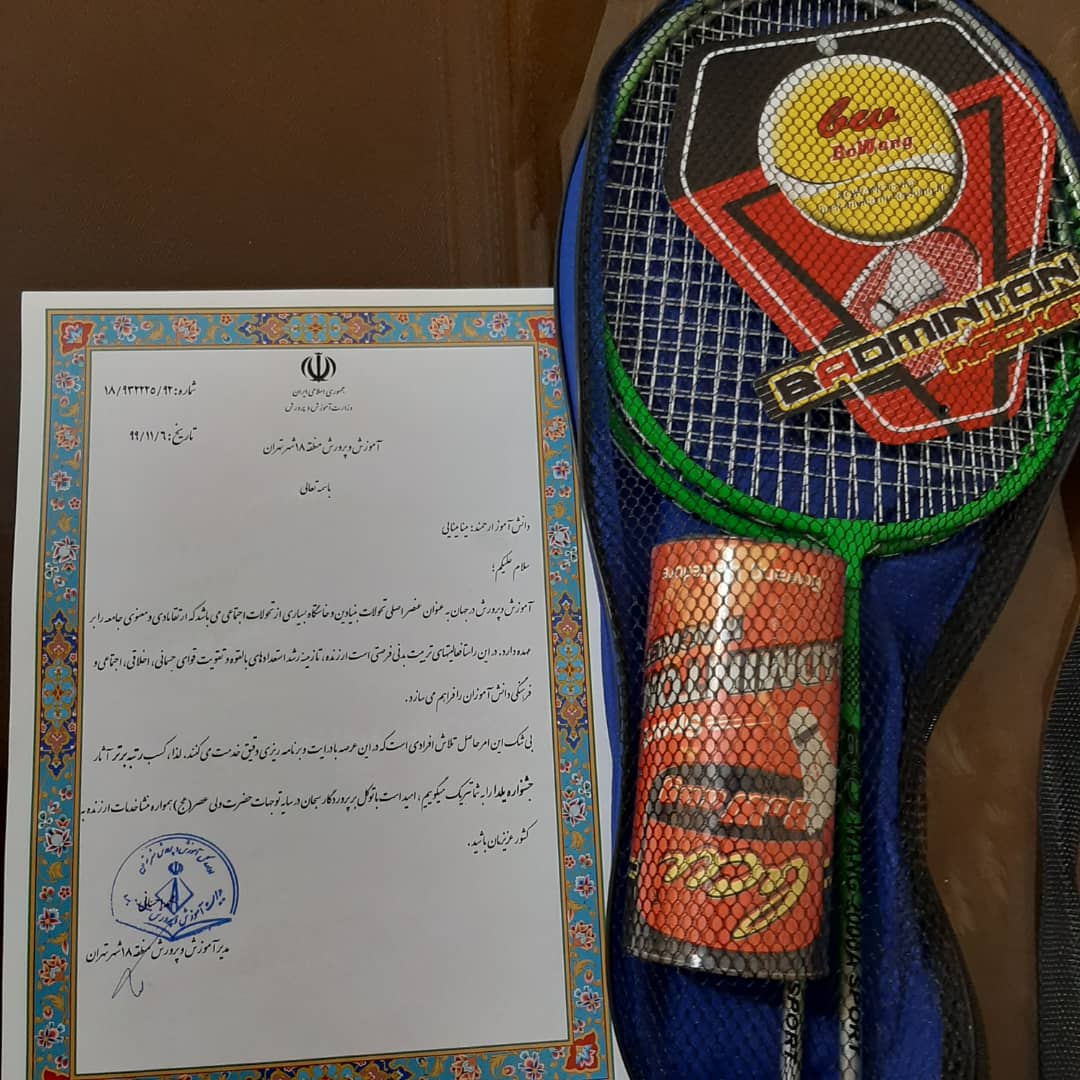 جمهوری اسلامی ایران
وزارت آموزش و پرورش
شماره: ۱۸/۹۳۲۲۲۵/۹۲
تاریخ: ۹۹/۱۱/۶
آموزش و پرورش منطقه ۱۸ شهر تهران
باسمه تعالی
دانش آموز ارجمند: مینا مینایی
سلام علیکم؛
آموزش و پرورش در جهان به عنوان عنصر اصلی تحولات بنیادین و خاستگاه بسیاری از تحولات اجتماعی می باشد که ارتقا مادی و معنوی جامعه را بر
عهده دارد. در این راستا فعالیتهای تربیت بدنی فرصتی است ارزنده، تا زمینه رشد استعدادهای بالقوه و تقویت قوای جسمانی، اخلاقی، اجتماعی و
فرهنگی دانش آموزان را فراهم می سازد.
بی شک این امر حاصل تلاش افرادی است که در این عرصه با درایت و برنامه ریزی دقیق خدمت می کنند. لذا، کسب رتبه برتر آثار
جشنواره یلدا را به شما تبریک میگوییم، امید است با توکل بر پروردگار سبحان در سایه توجهات حضرت ولی عصر(عج) همواره منشا خدمات ارزنده به
کشور عزیزمان باشید.
مدیر آموزش و پرورش منطقه ۱۸ شهر تهران
bw
BoWang
BADMINTON
RACKET
SPORT
SPORT